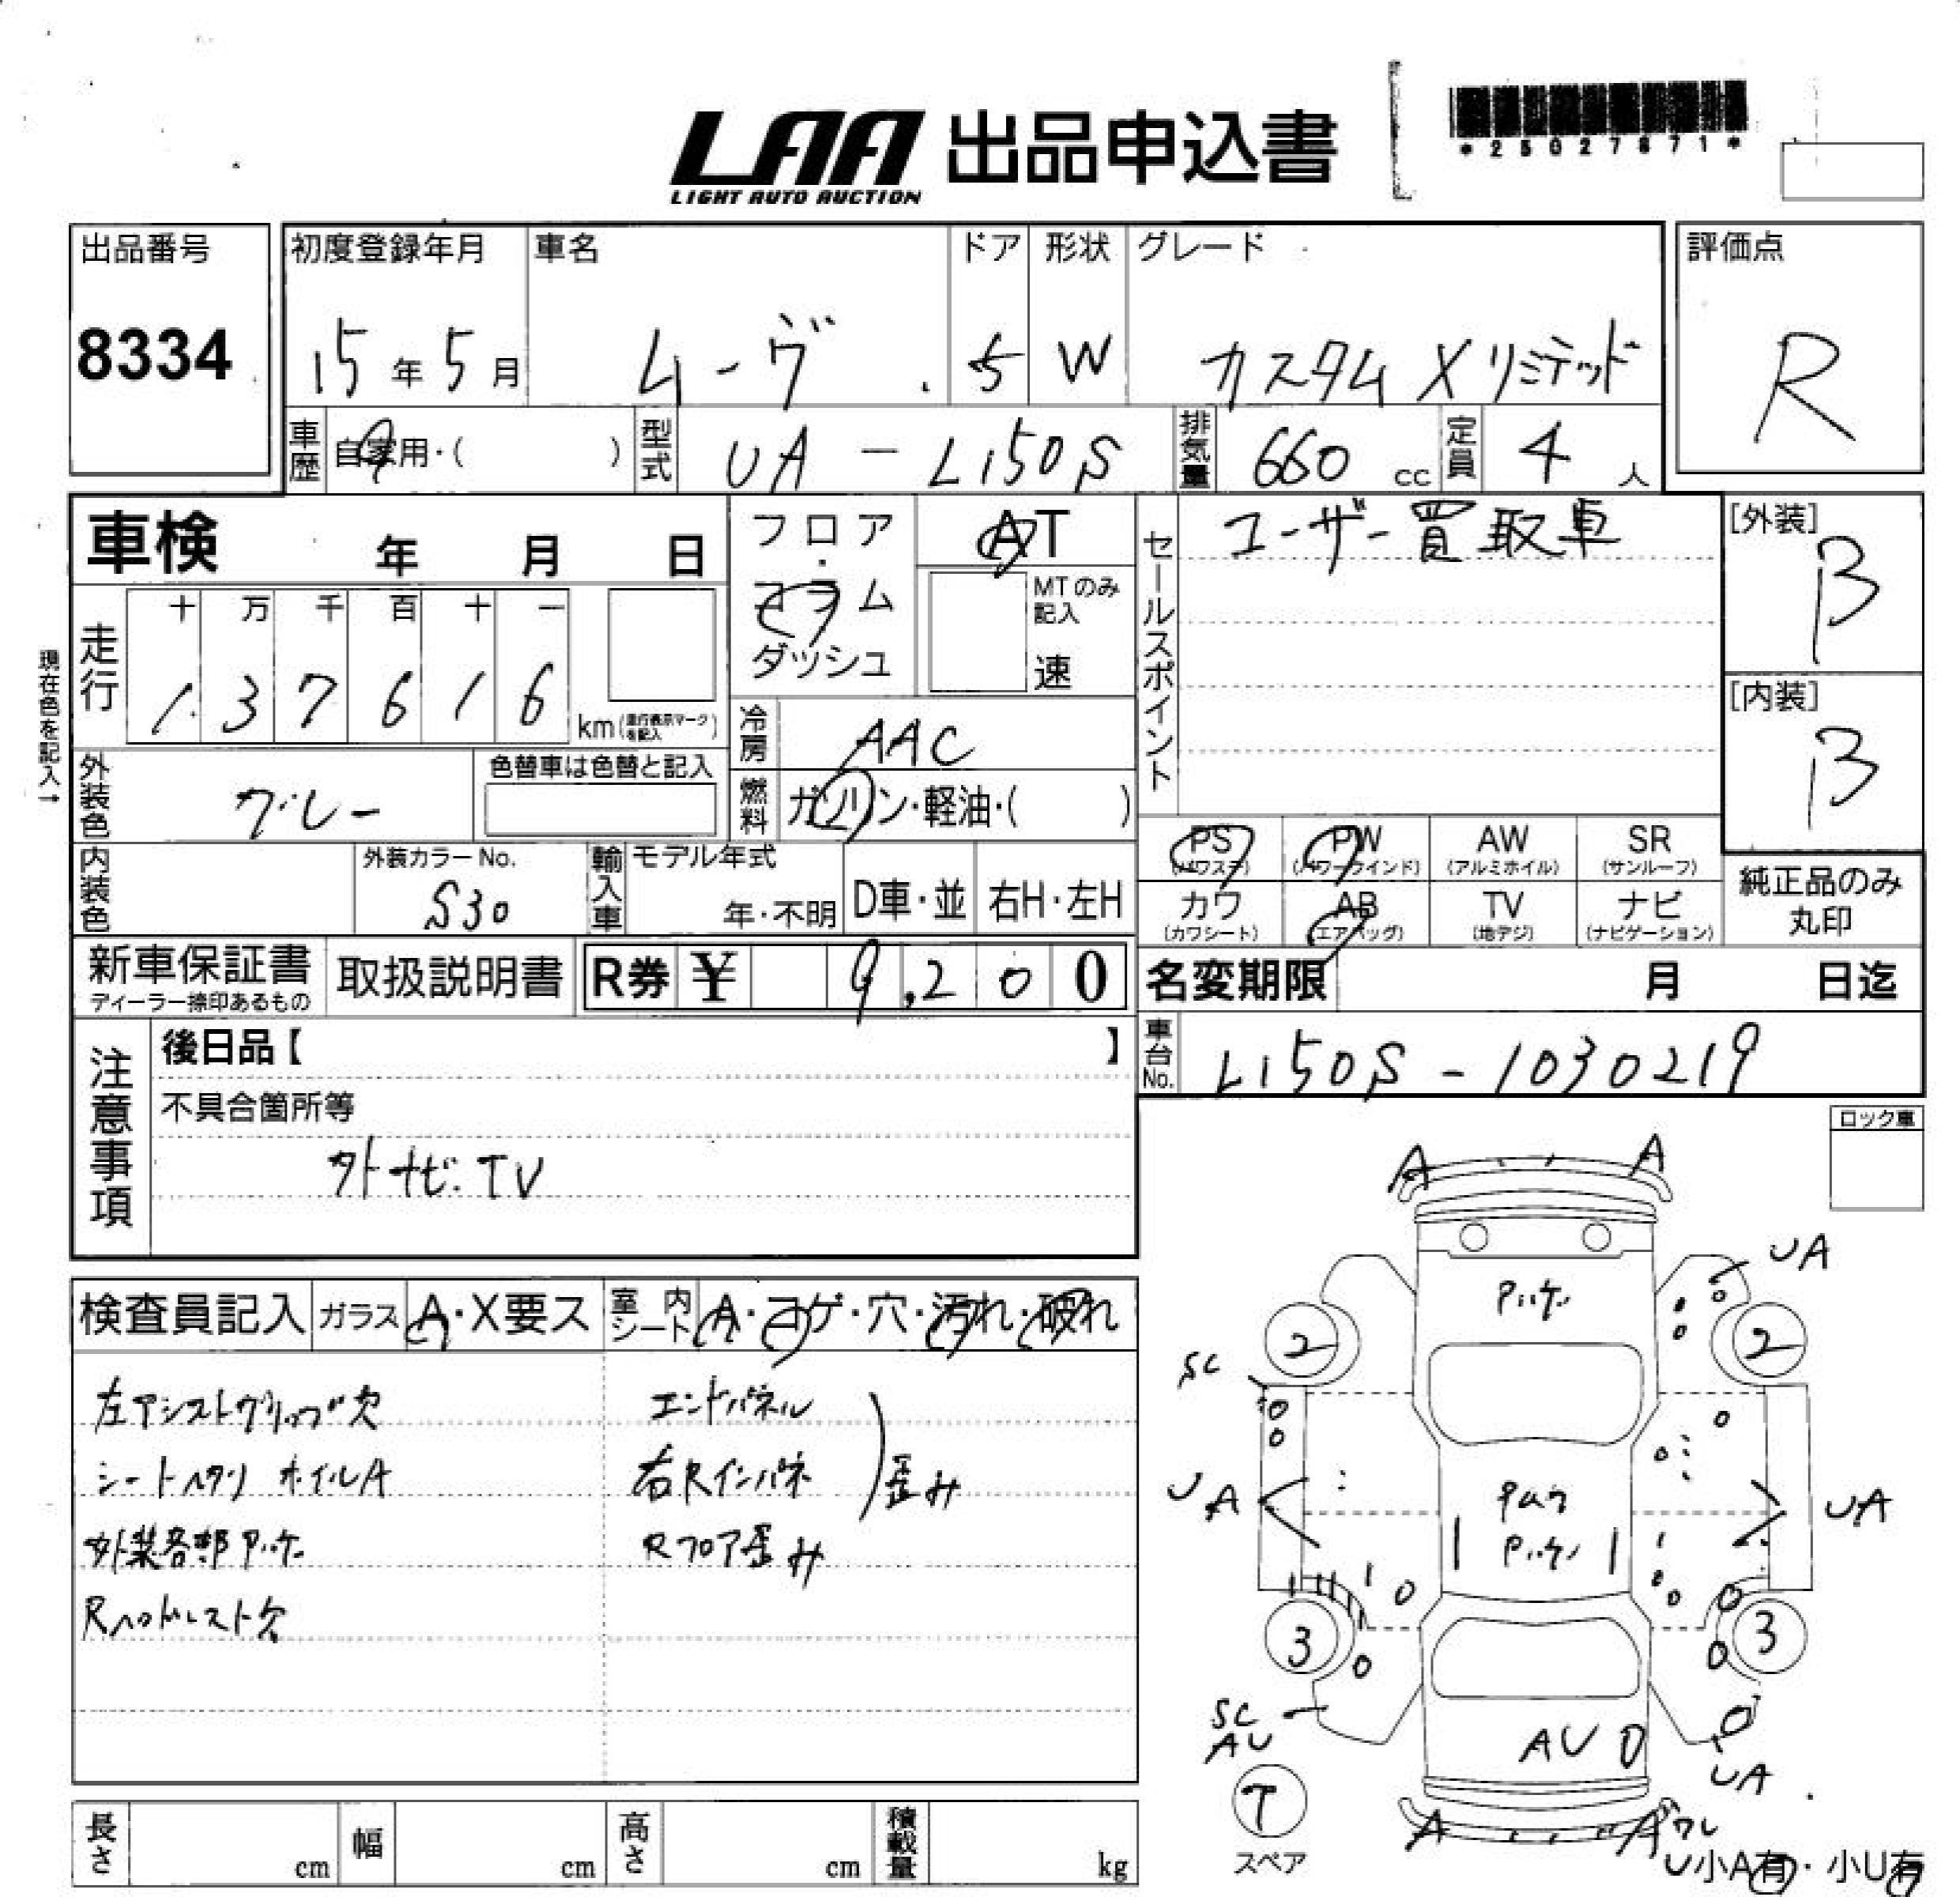 LAA 出品申込書
LIGHT AUTO AUCTION
*25027871*
出品番号 初度登録年月 車名 ドア 形状 グレード 評価点
8334 15年5月 ムーヴ 5 W カスタム Xリミテッド R
車歴 自家用・( ) 型式 UA-L150S 排気量 660 cc 定員 4 人
車検 年 月 日
フロア・コラム ダッシュ
AT
MTのみ記入
速
セールスポイント ユーザー買取車
[外装] B
[内装] B
現在色を記入→
走行 十 万 千 百 十 一
1 3 7 6 1 6 km(走行表示マークを記入)
冷房 AAC
外装色 グレー 色替車は色替と記入
燃料 ガソリン・軽油・( )
内装色 外装カラーNo. S30
輸入車 モデル年式 年・不明 D車・並 右H・左H
PS (パワステ) PW (パワーウインド) AW (アルミホイル) SR (サンルーフ)
カワ (カワシート) AB (エアバッグ) TV (地デジ) ナビ (ナビゲーション)
純正品のみ丸印
新車保証書 ディーラー捺印あるもの 取扱説明書 R券 ¥ 9,200
名変期限 月 日迄
車台No. L150S-1030219
注意事項 後日品【 】
不具合箇所等
外ナビ.TV
ロック車
検査員記入 ガラス A・X要ス 室内シート A・コゲ・穴・汚れ・破れ
左アシストグリップ欠 エンドパネル
シートヘタリ ホイルA 右Rインパネ 歪み
外装各部アッケ Rフロア歪み
Rヘッドレスト欠
A A
UA
2 2
SC
UA UA
3 3
SC
AU
AU
UA
T
スペア
A A ワレ
U小A有・小U有
長さ cm 幅 cm 高さ cm 積載量 kg